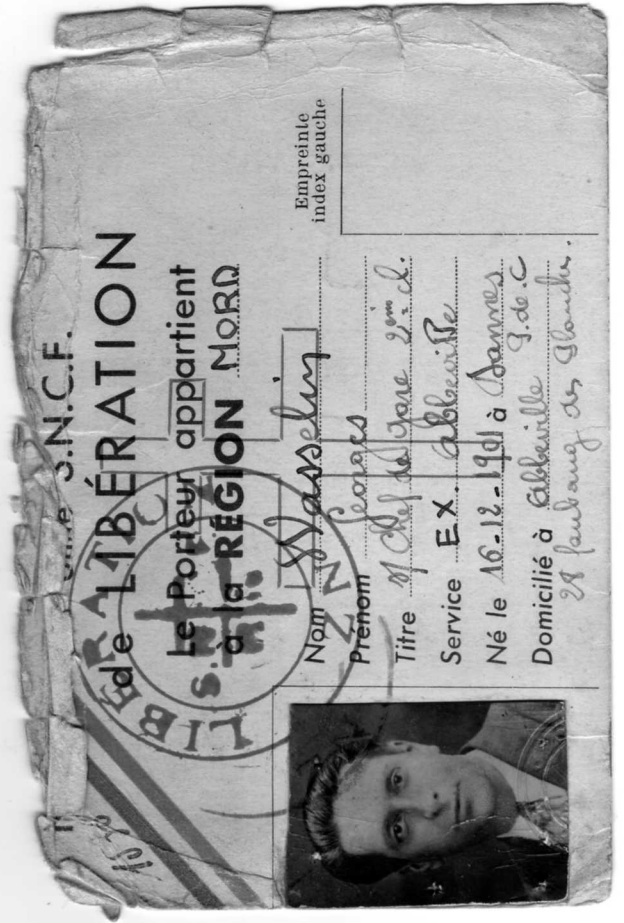 S.N.C.F.
de LIBÉRATION
Le Porteur appartient
à la RÉGION NORD
Nom Wasselin
Prénom Georges
Titre s/ Chef de gare 2ème cl.
Service EX. Abbeville
Né le 16-12-1901 à Dannes
P. de. C
Domicilié à Abbeville
28 faubourg des Planches.
Empreinte
index gauche
LIBÉRATION
S.N.C.F.